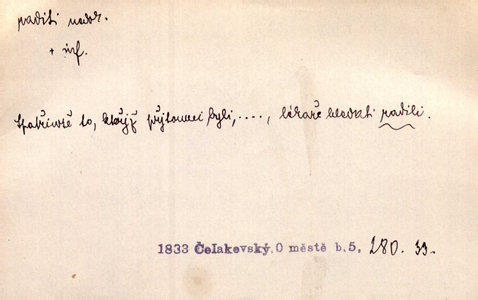 raditi nedok.
+ inf.
Spatřivše to, kteříž přítomni byli,...., lékaře hledati radili.
1833 Čelakovský, O městě b.5, 280. 33.